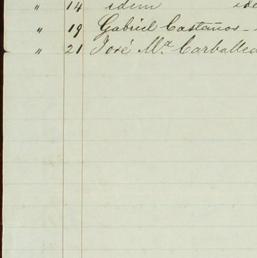 " 14 idem ide
" 19 Gabriel Castaños -
" 21 José Mª Carballed